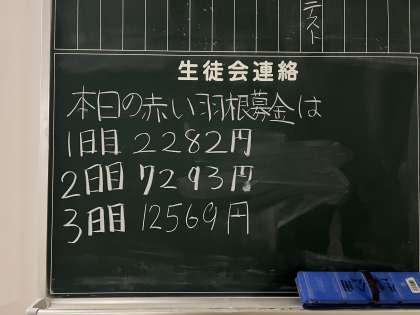 テスト
生徒会連絡
本日の赤い羽根募金は
1日目 2282円
2日目 7293円
3日目 12569円